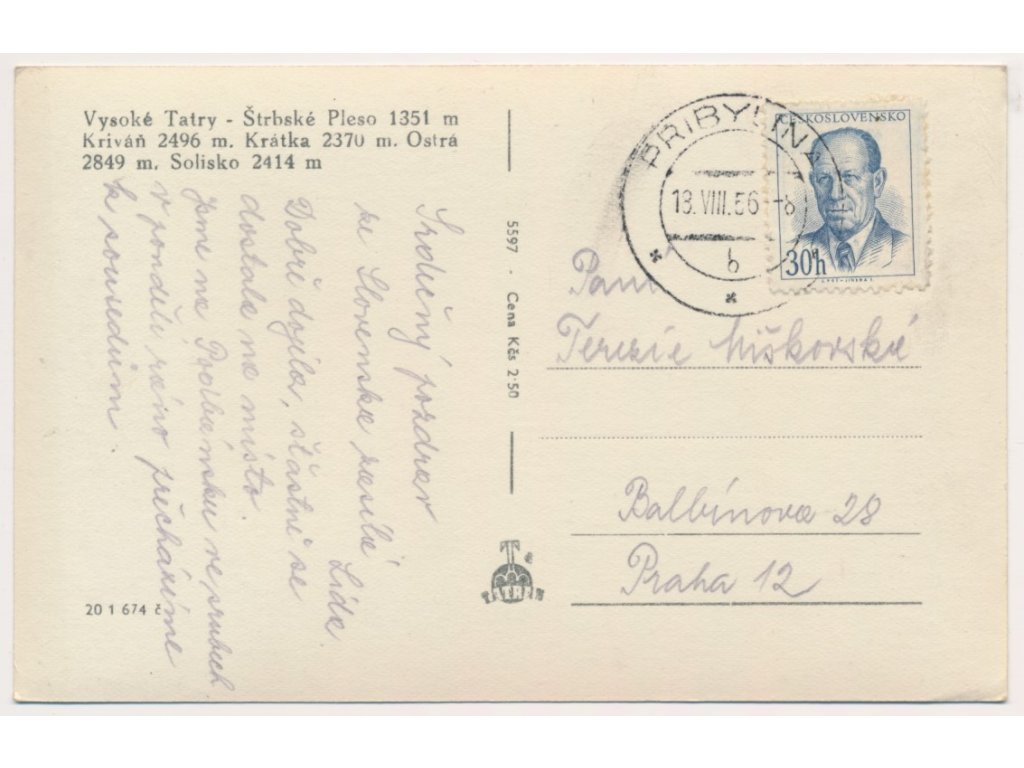 Vysoké Tatry - Štrbské Pleso 1351 m
Kriváň 2496 m. Krátka 2370 m. Ostrá
2849 m. Solisko 2414 m
Srdečný pozdrav
ze Slovenska zasílá
Lída
Dobře dojela, šťastně se
dostala na místo.
Jsme na Podbánsku ve srubech
v pondělí ráno přicházíme
k sousedům.
20 1 674 č
5597 · Cena Kčs 2·50
TATRAN
PRIBYLINA
18. VIII. 56 -8
b
ČESKOSLOVENSKO
30h
Paní
Terezie Miškovská
Balbínova 28
Praha 12